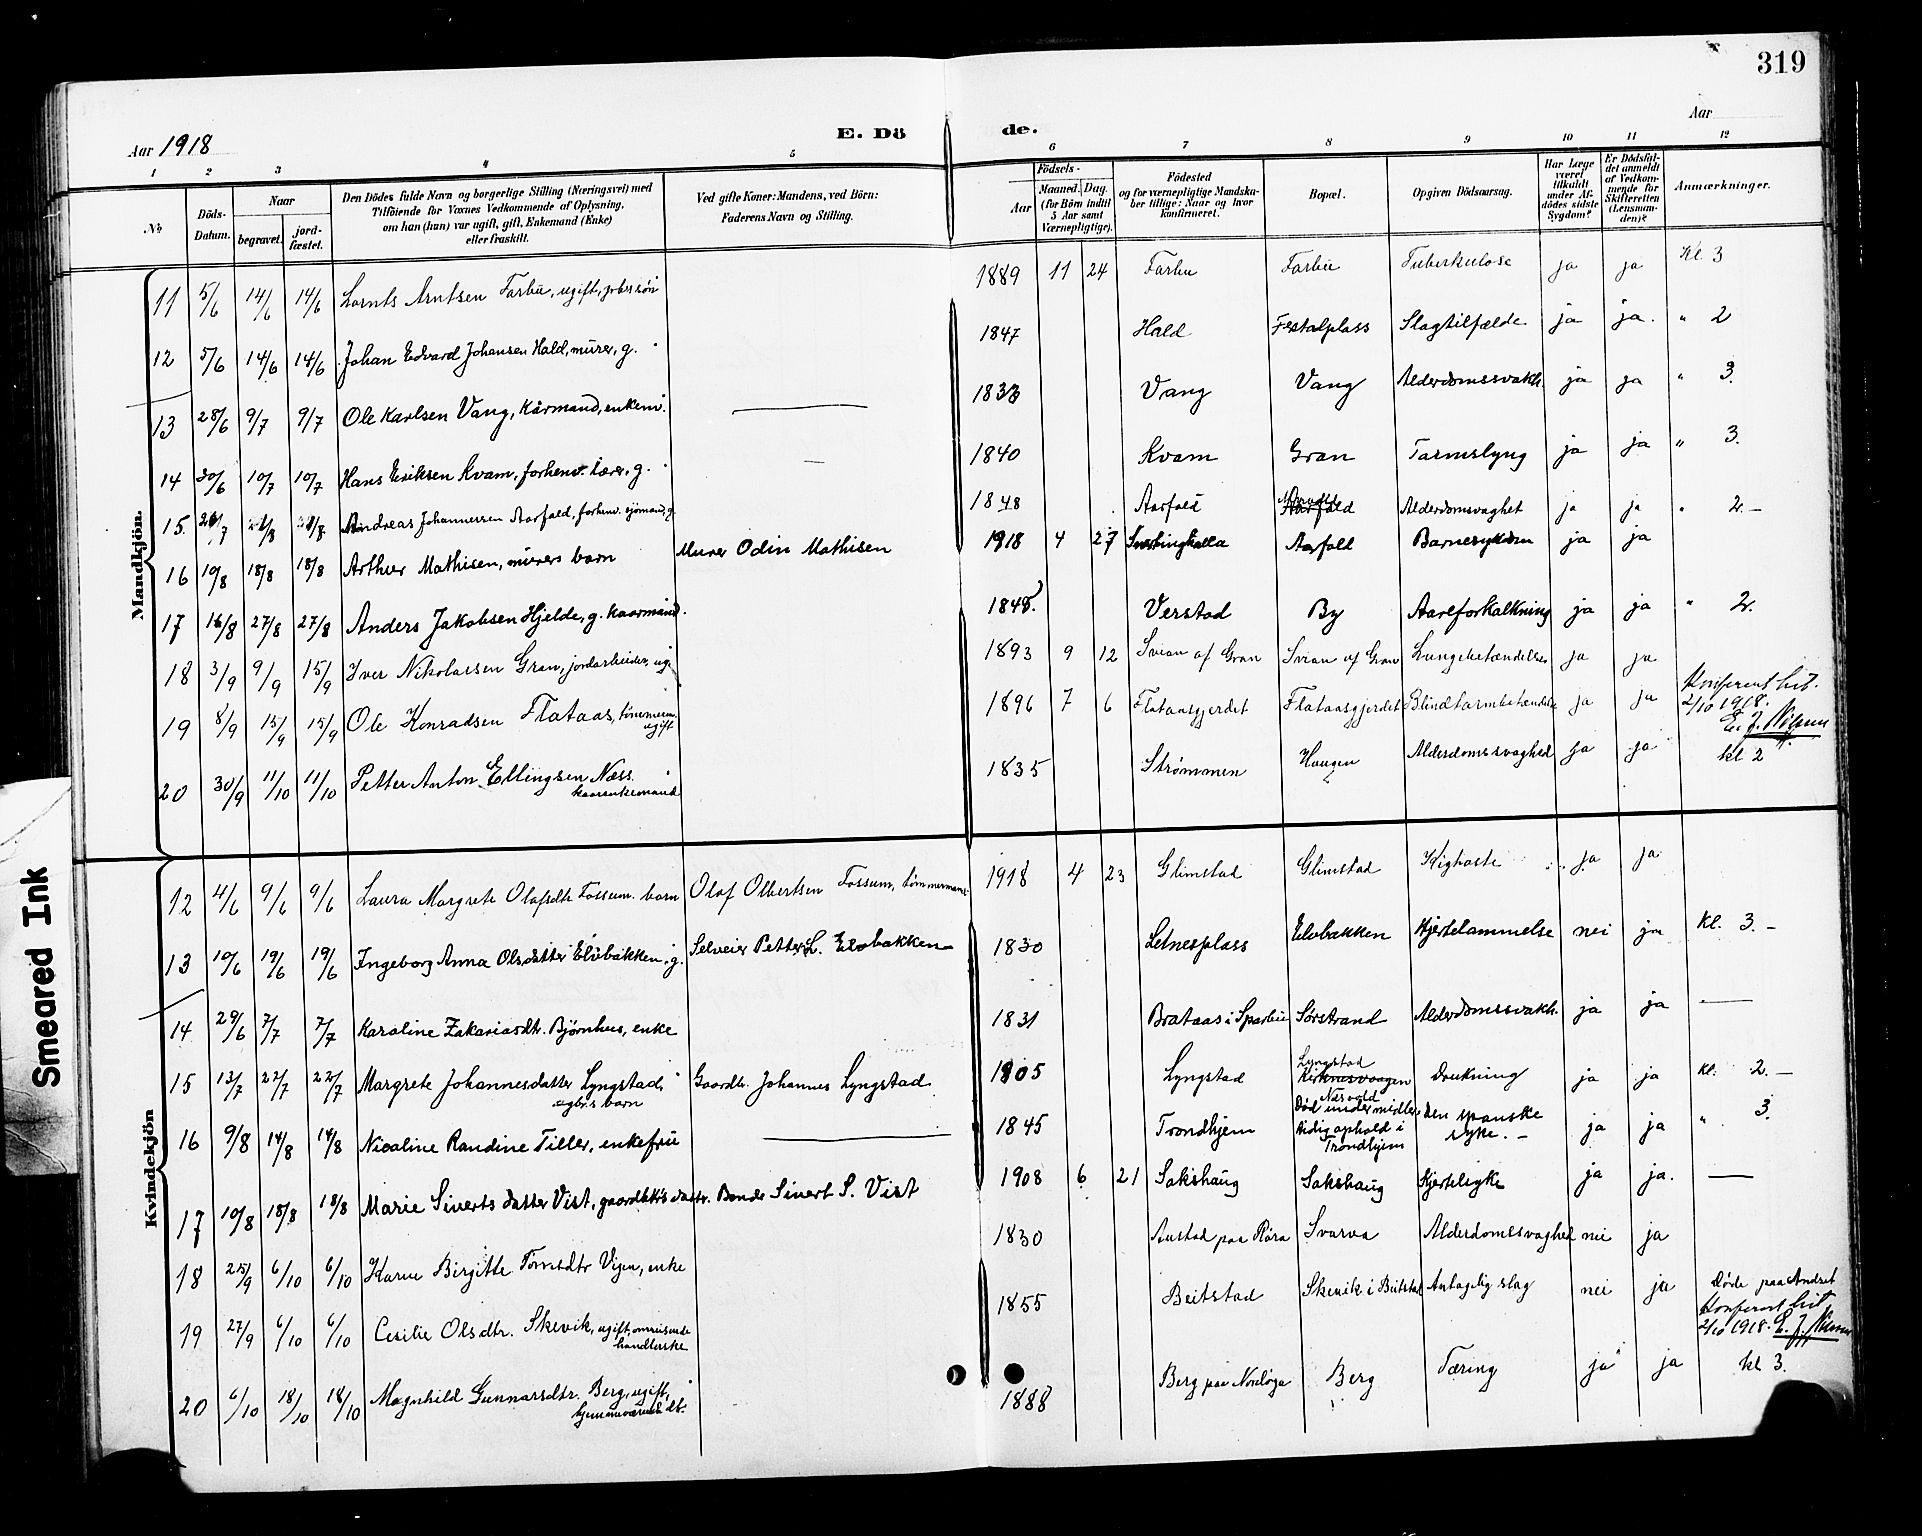 319
Aar 1918
E. Dö
de.
Aar
1 2 3 4 5 6 7 8 9 10 11 12
No
Döds-
Datum.
Naar
begravet.
jord-
fæstet.
Den Dödes fulde Navn og borgerlige Stilling (Næringsvei) med
Tilföiende for Voxnes Vedkommende af Oplysning,
om han (hun) var ugift, gift, Enkemand (Enke)
eller fraskilt.
Ved gifte Koner: Mandens, ved Börn:
Faderens Navn og Stilling.
Födsels-
Aar
Maaned. Dag.
(for Börn indtil
5 Aar samt
Værnepligtige).
Födested
og for værnepligtige Mandska-
ber tillige: Naar og hvor
konfirmeret.
Bopæl.
Opgiven Dödsaarsag.
Har Læge
været
tilkaldt
under Af-
dödes sidste
Sygdom?
Er Dödsfal-
det anmeldt
af Vedkom-
mende for
Skifteretten
(Lensman-
den)?
Anmærkninger.
Mandkjön.
11 5/6 14/6 14/6 Lornts Arntsen Farbu, ugift, jobss søn 1889 11 24 Farbu Farbu Tuberkulose ja ja Kl. 3
12 5/6 14/6 14/6 Johan Edvard Johansen Hald, murer, g. 1847 Hald Festalplass Slagtilfælde ja ja. " 2
13 28/6 9/7 9/7 Ole Karlsen Vang, Kårmand, enkem. 1833 Vang Vang Alderdomssvakh. ja ja " 3.
14 30/6 10/7 10/7 Hans Eriksen Kvam, forhenv. lærer, g. 1840 Kvam Gran Tarmslyng ja ja " 3.
15. Andreas Johannessen Aarfald, forhenv. sjømand, g. 1848 Aarfald Aarfald Alderdomsvaghet ja ja " 2. -
16 10/8 18/8 18/8 Arthur Mathisen, murers barn Murer Odin Mathisen 1918 4 27 Aarfall Barnesykdom ja ja
17 16/8 27/8 27/8 Anders Jakobsen Hjelde, g. kaarmand. 1848. Verstad By Aareforkalkning ja ja " 2.
18 3/9 9/9 15/9 Iver Nikolaisen Gran, jordarbeider, ug. 1893 9 12 Svian af Gran Svian af Gran Lungebetændelse ja ja
19 8/9 15/9 15/9 Ole Konradsen Flataas, tömmerm. ugift 1896 7 6 Flataasgjerdet Flataasgjerdet Blindtarmbetændelse ja ja Konferert hit.
2/10 1918.
E. J. Nilssen
20 30/9 11/10 11/10 Petter Anton Ellingsen Næss.
kaarenkemand 1835 Strømmen Haugen Alderdomssvaghed ja ja kl 2
Kvindekjön
12 4/6 9/6 9/6 Laura Margrete Olafsdtr Fossum. barn Olaf Olbertsen Fossum, tömmermand 1918 4 23 Glimstad Glimstad Kighoste ja ja
13 10/6 19/6 19/6 Ingeborg Anna Olsdatter Elvbakken, g. Selveier Petter L. Elvbakken 1830 Letnesplass Elvbakken Hjertelammelse nei ja Kl. 3. -
14 29/6 7/7 7/7 Karoline Zakariasdt. Bjørnhus, enke 1831 Brataas i Sparbu Sørstrand Alderdomssvakh. ja ja —
15 13/7 22/7 22/7 Margrete Johannesdatter Lyngstad,
ugbr.s barn Gaardbr. Johannes Lyngstad 1905 Lyngstad Lyngstad
Kirknesvaagen Drukning ja ja kl. 2. -
16 9/8 14/8 14/8 Nicoline Randine Tiller, enkefru — 1845 Trondhjem Næsvold
Död under midler-
tidig ophold i
Trondhjem Den spanske
syke. - ja ja " 3.
17 10/8 18/8 18/8 Marie Siverts datter Vist, gaardbkr's datr. Bonde Sivert S. Vist 1908 6 21 Sakshaug Sakshaug Hjertesyke ja ja. —
18 25/9 6/10 6/10 Karen Birgitte Tomsdtr Vigen, enke 1830 Austad paa Röra Svarva Alderdomssvaghed nei ja
19 27/9 6/10 6/10 Cecilie Olsdtr. Skevik, ugift, omreisende
handlerske 1855 Beitstad Skevik i Beitstad Antagelig slag nei ja Døde paa Andset
Konferert hit
2/10 1918. E. J. Nilssen
20 6/10 18/10 18/10 Magnhild Gunnarsdtr. Berg, ugift,
hjemmeværende dt. 1888 Berg paa Nordöga Berg Tæring ja ja kl 3.
Smeared Ink